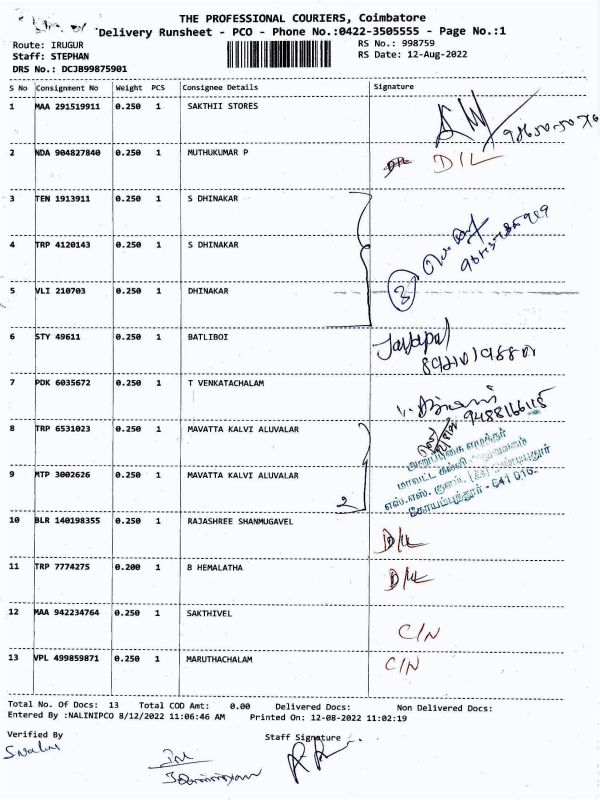 THE PROFESSIONAL COURIERS, Coimbatore
Delivery Runsheet - PCO - Phone No.:0422-3505555 - Page No.:1
Route: IRUGUR RS No.: 998759
Staff: STEPHAN RS Date: 12-Aug-2022
DRS No.: DCJB99875901
S No Consignment No Weight PCS Consignee Details Signature
1 MAA 291519911 0.250 1 SAKTHII STORES
2 NDA 904827840 0.250 1 MUTHUKUMAR P D/L
3 TEN 1913911 0.250 1 S DHINAKAR
4 TRP 4120143 0.250 1 S DHINAKAR
5 VLI 210703 0.250 1 DHINAKAR 3
6 STY 49611 0.250 1 BATLIBOI Jayapal
7 PDK 6035672 0.250 1 T VENKATACHALAM
9488166115
8 TRP 6531023 0.250 1 MAVATTA KALVI ALUVALAR
9 MTP 3002626 0.250 1 MAVATTA KALVI ALUVALAR 2
மாவட்ட கல்வி
கோயம்புத்தூர் - 641 016.
10 BLR 140198355 0.250 1 RAJASHREE SHANMUGAVEL D/L
11 TRP 7774275 0.200 1 B HEMALATHA D/L
12 MAA 942234764 0.250 1 SAKTHIVEL C/N
13 VPL 499859871 0.250 1 MARUTHACHALAM C/N
Total No. Of Docs: 13 Total COD Amt: 0.00 Delivered Docs: Non Delivered Docs:
Entered By :NALINIPCO 8/12/2022 11:06:46 AM Printed On: 12-08-2022 11:02:19
Verified By Staff Signature